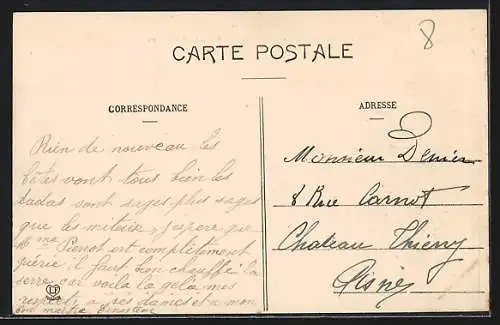 CARTE POSTALE
8
CORRESPONDANCE
ADRESSE
Rien de nouveau les
bêtes vont tous bien les
dadas sont sages plus sages
que les mitaire, j'espere que
Mme Pierrot est complètement
guérie il faut bien chauffé la
serre car voila la gelé, mes
respects a ces dames et a mon
bon maître Ernestine
Monsieur Denier
8 Rue Carnot
Chateau Thierry
Aisne